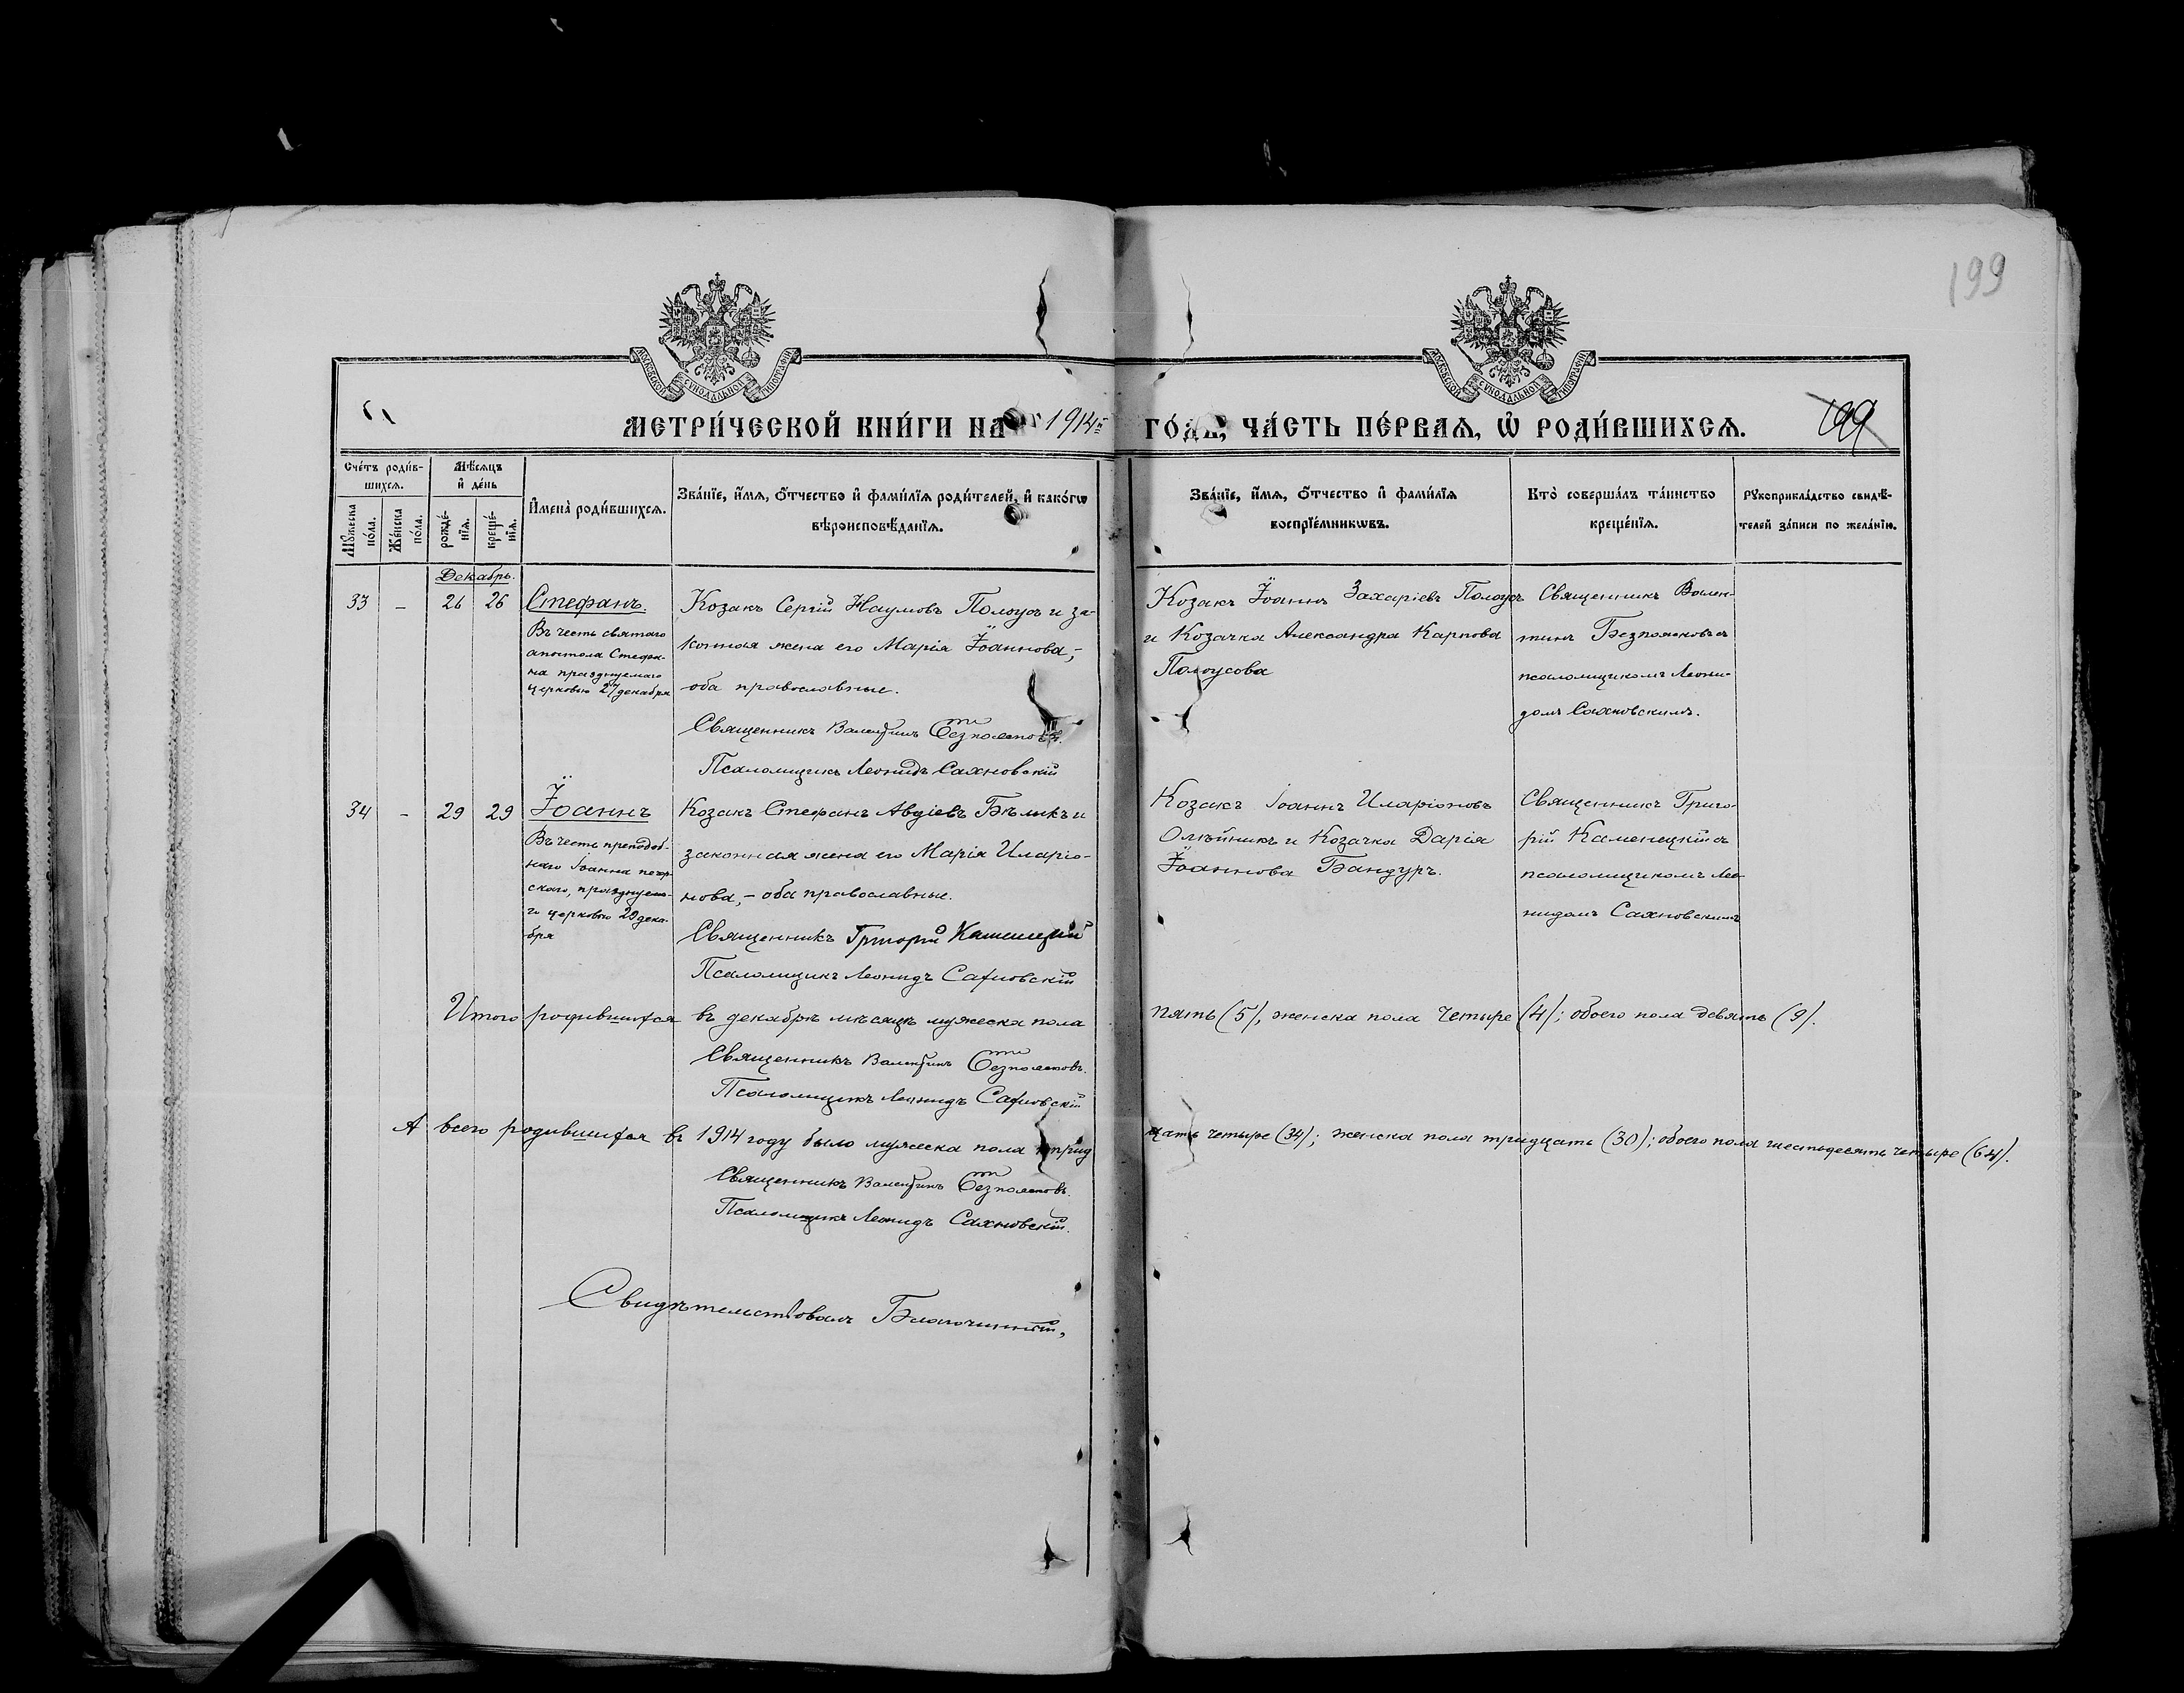 199
МОСКОВСКОЙ СѴНОДАЛЬНОЙ ТИПОГРАФІИ
МОСКОВСКОЙ СѴНОДАЛЬНОЙ ТИПОГРАФІИ
МЕТРИ́ЧЕСКОЙ КНИ́ГИ НА 1914й ГО́ДЪ, ЧА́СТЬ ПЕ́РВАѦ, Ѡ҆ РОДИ́ВШИХСѦ.
199
Сче́тъ роди́в-
шихсѧ.
Мꙋ́жеска
по́ла.
Же́нска
по́ла.
Мѣ́сѧцъ
и҆ де́нь
рожде́-
нїѧ.
креще́-
нїѧ.
И҆мена̀ роди́вшихсѧ.
Зва́нїе, и҆́мѧ, ѻ҆́тчество и҆ фами́лїѧ роди́телей, и҆ како́гѡ
вѣроисповѣ́данїѧ.
Зва́нїе, и҆́мѧ, ѻ҆́тчество и҆ фами́лїѧ
воспрїе́мникѡвъ.
Кто̀ соверша́лъ та́инство
креще́нїѧ.
Рꙋкоприкла́дство свидѣ́-
телей за́писи по жела́нїю.
Декабрь.
33 – 26 26 Стефанъ.
Въ честь святаго
апостола Стефа-
на празднуемаго
церковью 27 декабря
Козакъ Сергій Наумовъ Полоусъ и за-
конная жена его Марія Іоаннова,-
оба православные.
Священникъ Валентинъ Безпалковъ.
Псаломщикъ Леонидъ Сахновскій
Козакъ Іоаннъ Захаріевъ Полоусъ
и Козачка Александра Карпова
Полоусова
Священникъ Вален-
тинъ Безпалковъ съ
псаломщикомъ Леони-
домъ Сахновскимъ.
34 – 29 29 Іоаннъ
Въ честь преподоб-
наго Іоанна печер-
скаго, празднуема-
го церковью 29 дека-
бря
Козакъ Стефанъ Авдіевъ Бѣликъ и
законная жена его Марія Иларіо-
нова,- оба православные.
Священникъ Григорій Каменецкій
Псаломщикъ Леонидъ Сахновскій
Козакъ Іоаннъ Иларіоновъ
Олѣйникъ и Козачка Дарія
Іоаннова Бандуръ.
Священникъ Григо-
рій Каменецкій съ
псаломщикомъ Лео-
нидомъ Сахновскимъ
Итого родившихся въ декабрѣ мѣсяцѣ мужеска пола пять (5), женска пола четыре (4); обоего пола девять (9).
Священникъ Валентинъ Безпалковъ.
Псаломщикъ Леонидъ Сахновскій
А всего родившихся въ 1914 году было мужеска пола трид цать четыре (34); женска пола тридцать (30); обоего пола шестьдесятъ четыре (64).
Священникъ Валентинъ Безпалковъ.
Псаломщикъ Леонидъ Сахновскій.
Свидѣтельствовалъ Благочинный,